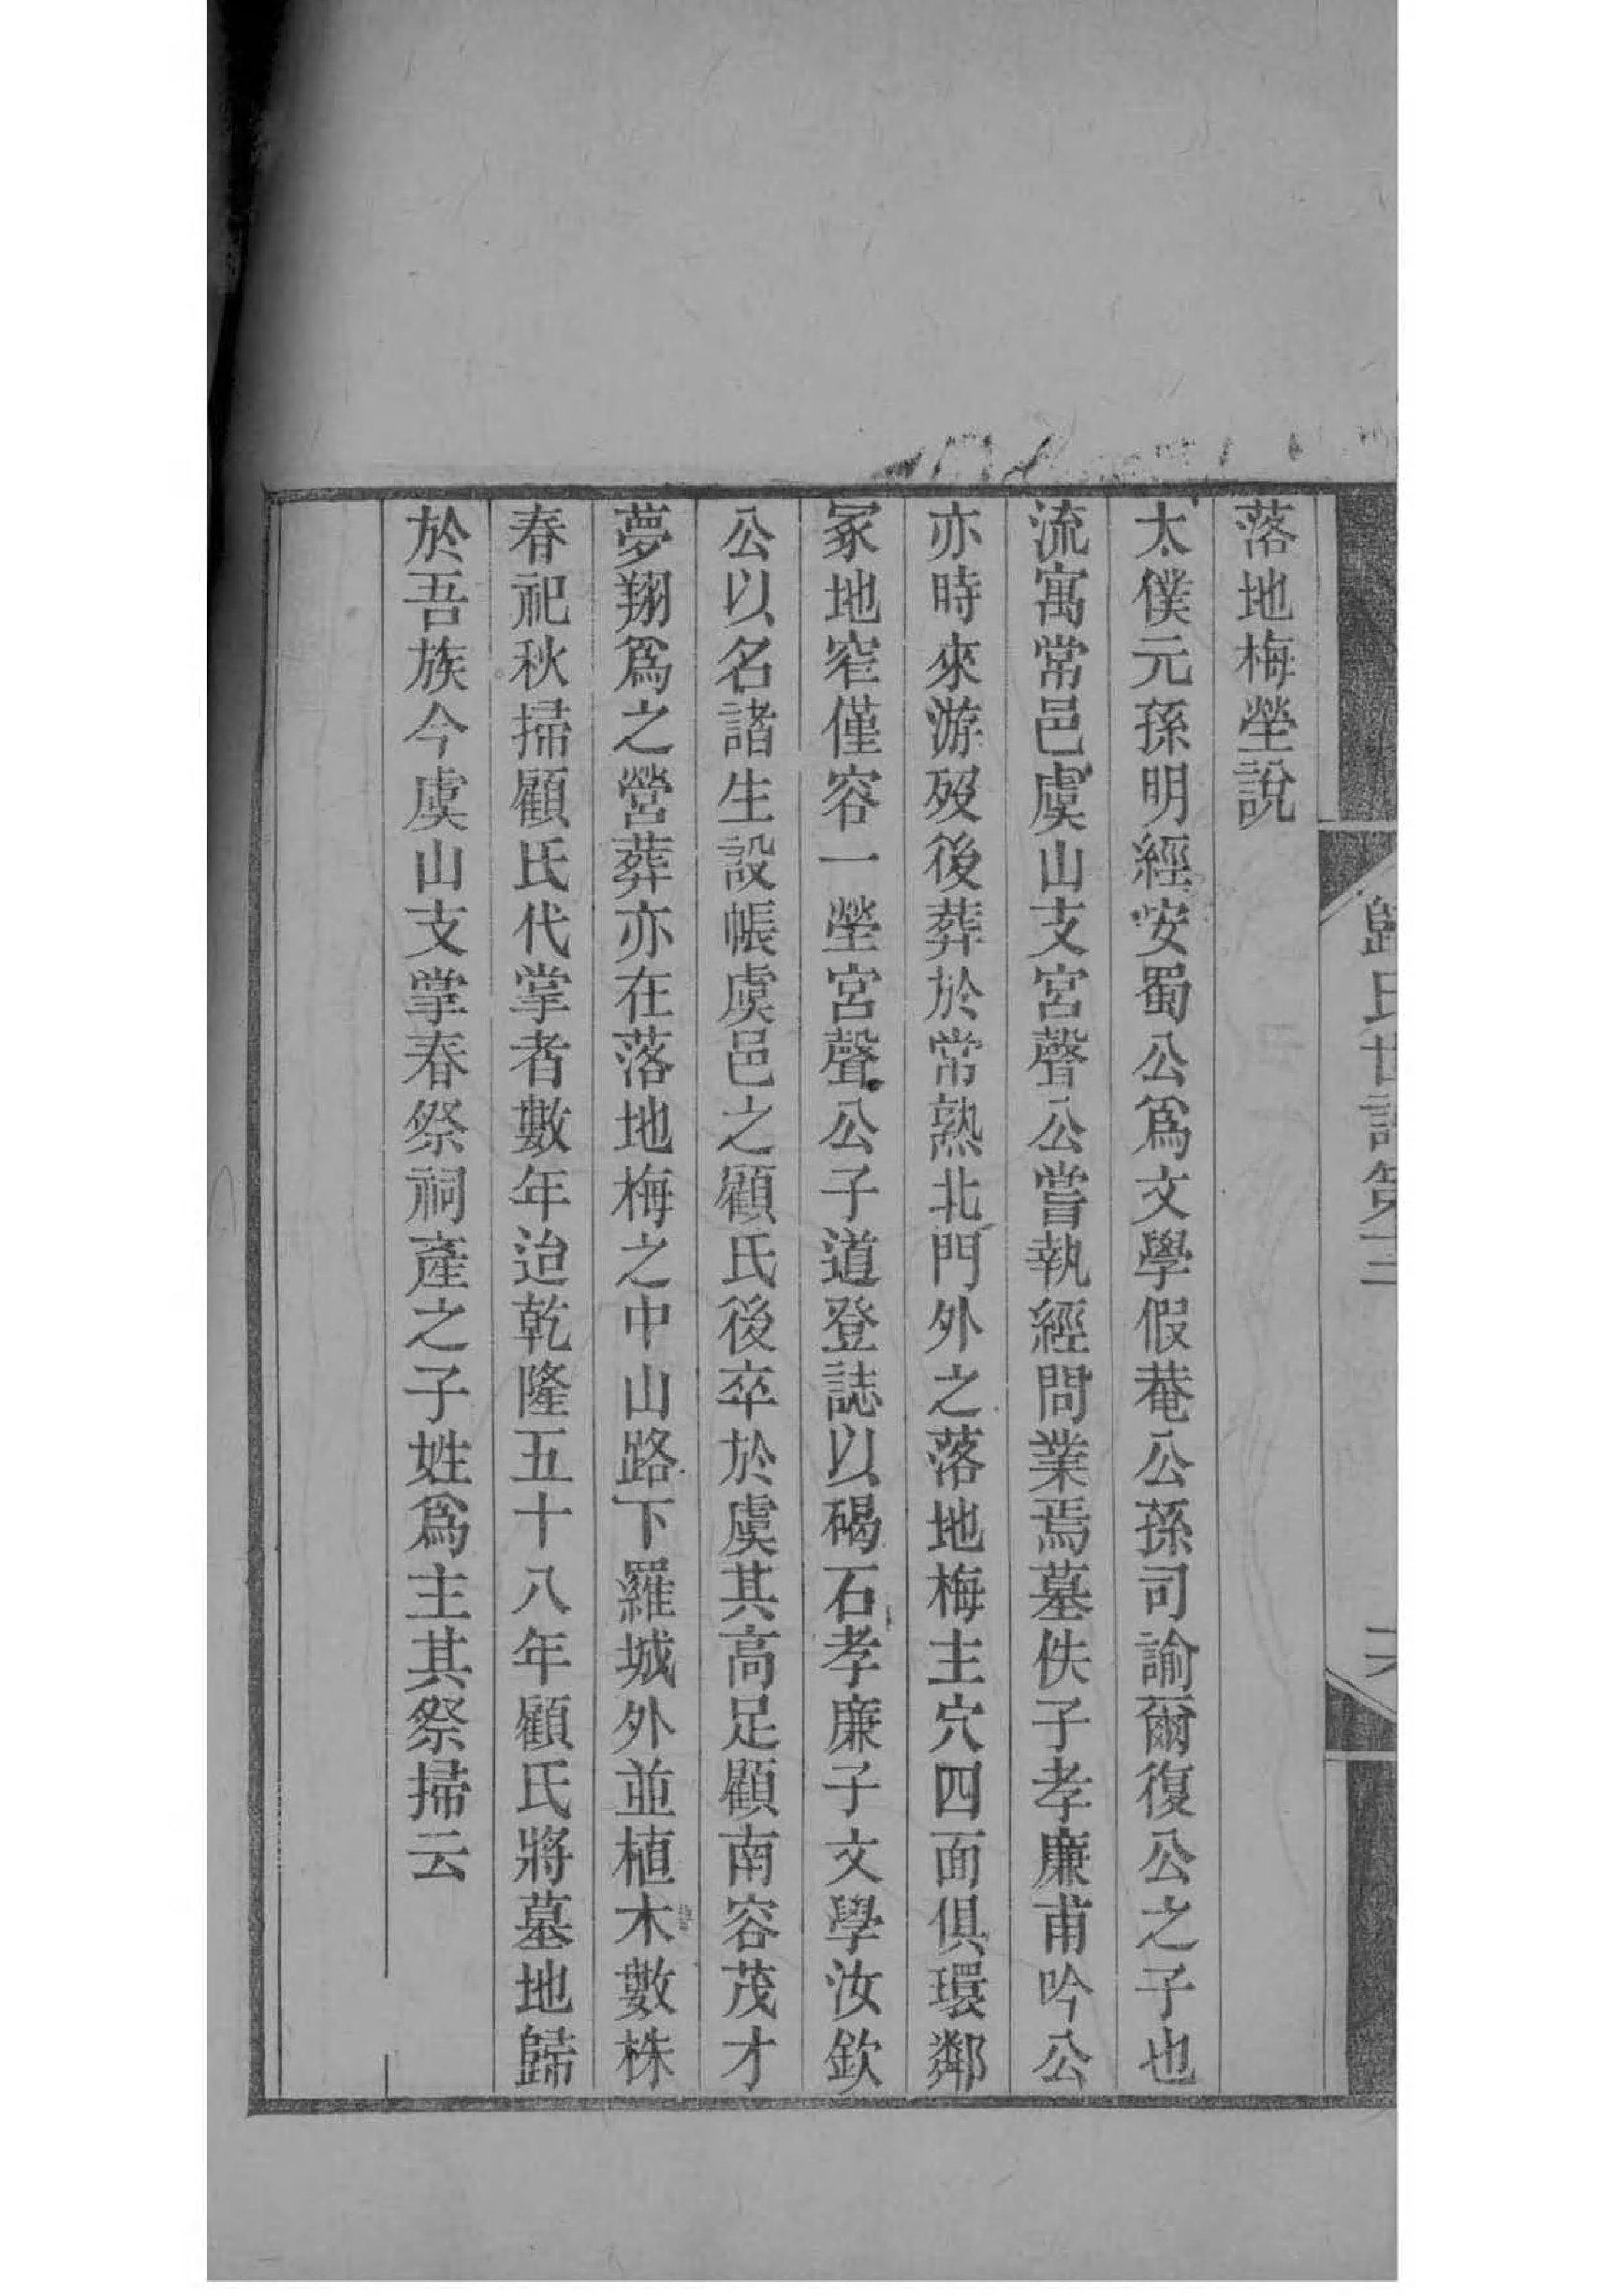 落地梅塋說
太僕元孫明經安蜀公爲文學假菴公孫司諭爾復公之子也
流寓常邑虞山支宮聲公嘗執經問業焉墓佚子孝廉甫吟公
亦時來游歿後葬於常熟北門外之落地梅主穴四面俱環鄰
冢地窄僅容一塋宮聲公子道登誌以碣石孝廉子文學汝欽
公以名諸生設帳虞邑之顧氏後卒於虞其高足顧南容茂才
夢翔爲之營葬亦在落地梅之中山路下羅城外並植木數株
春祀秋掃顧氏代掌者數年迨乾隆五十八年顧氏將墓地歸
於吾族今虞山支掌春祭祠產之子姓爲主其祭掃云
歸氏世譜第三